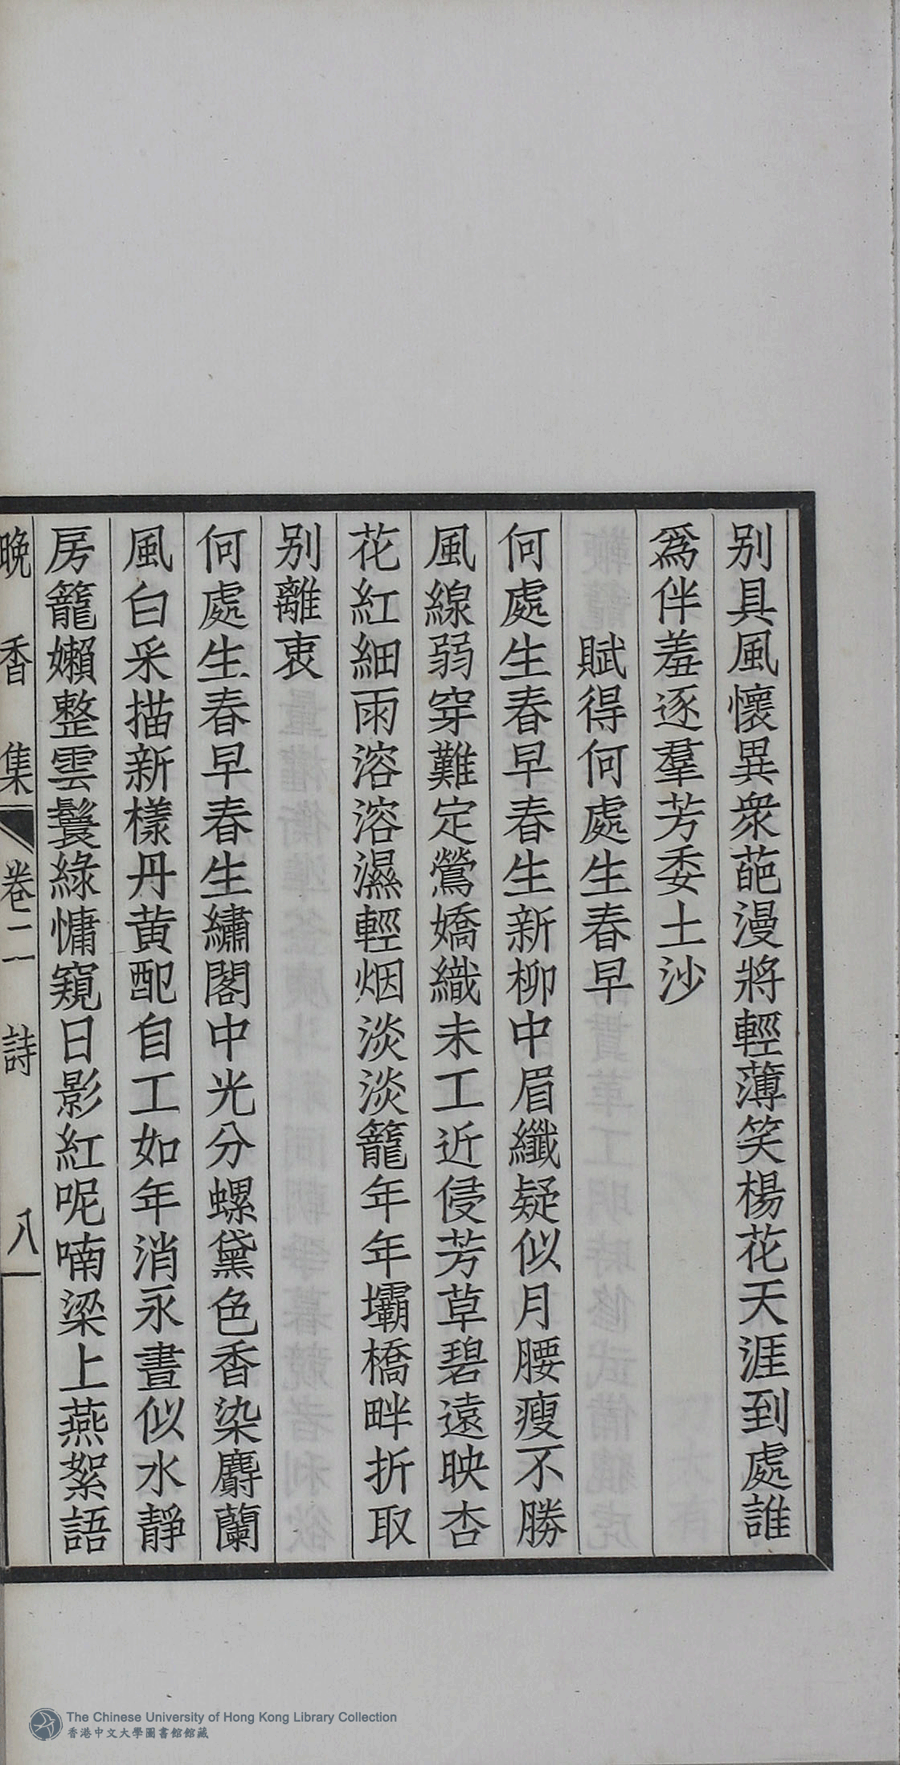 别具風懷異衆葩漫將輕薄笑楊花天涯到處誰
爲伴羞逐羣芳委土沙
賦得何處生春早
何處生春早春生新柳中眉纖疑似月腰瘦不勝
風線弱穿難定鶯嬌織未工近侵芳草碧遠映杏
花紅細雨溶溶濕輕烟淡淡籠年年壩橋畔折取
别離衷
何處生春早春生繡閣中光分螺黛色香染麝蘭
風白采描新樣丹黄配自工如年消永晝似水靜
房籠嬾整雲鬟綠慵窺日影紅呢喃梁上燕絮語
晩香集 卷二 詩 八
The Chinese University of Hong Kong Library Collection
香港中文大學圖書館館藏